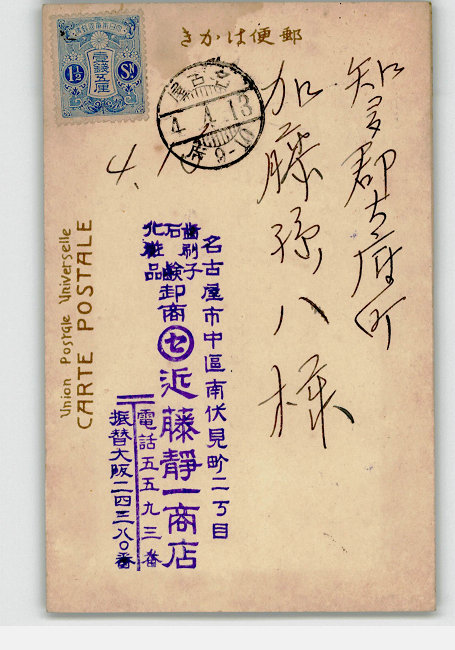 郵便はかき
壹錢五厘
1½ Sn
名古屋
4.4.13
9-10
4.
知多郡大府町
加藤孫八様
名古屋市中區南伏見町二丁目
歯刷子
石鹸
化粧品
卸商
セ 近藤靜一商店
電話五五九三番
振替大阪二四三八〇番
Union Postale Universelle
CARTE POSTALE